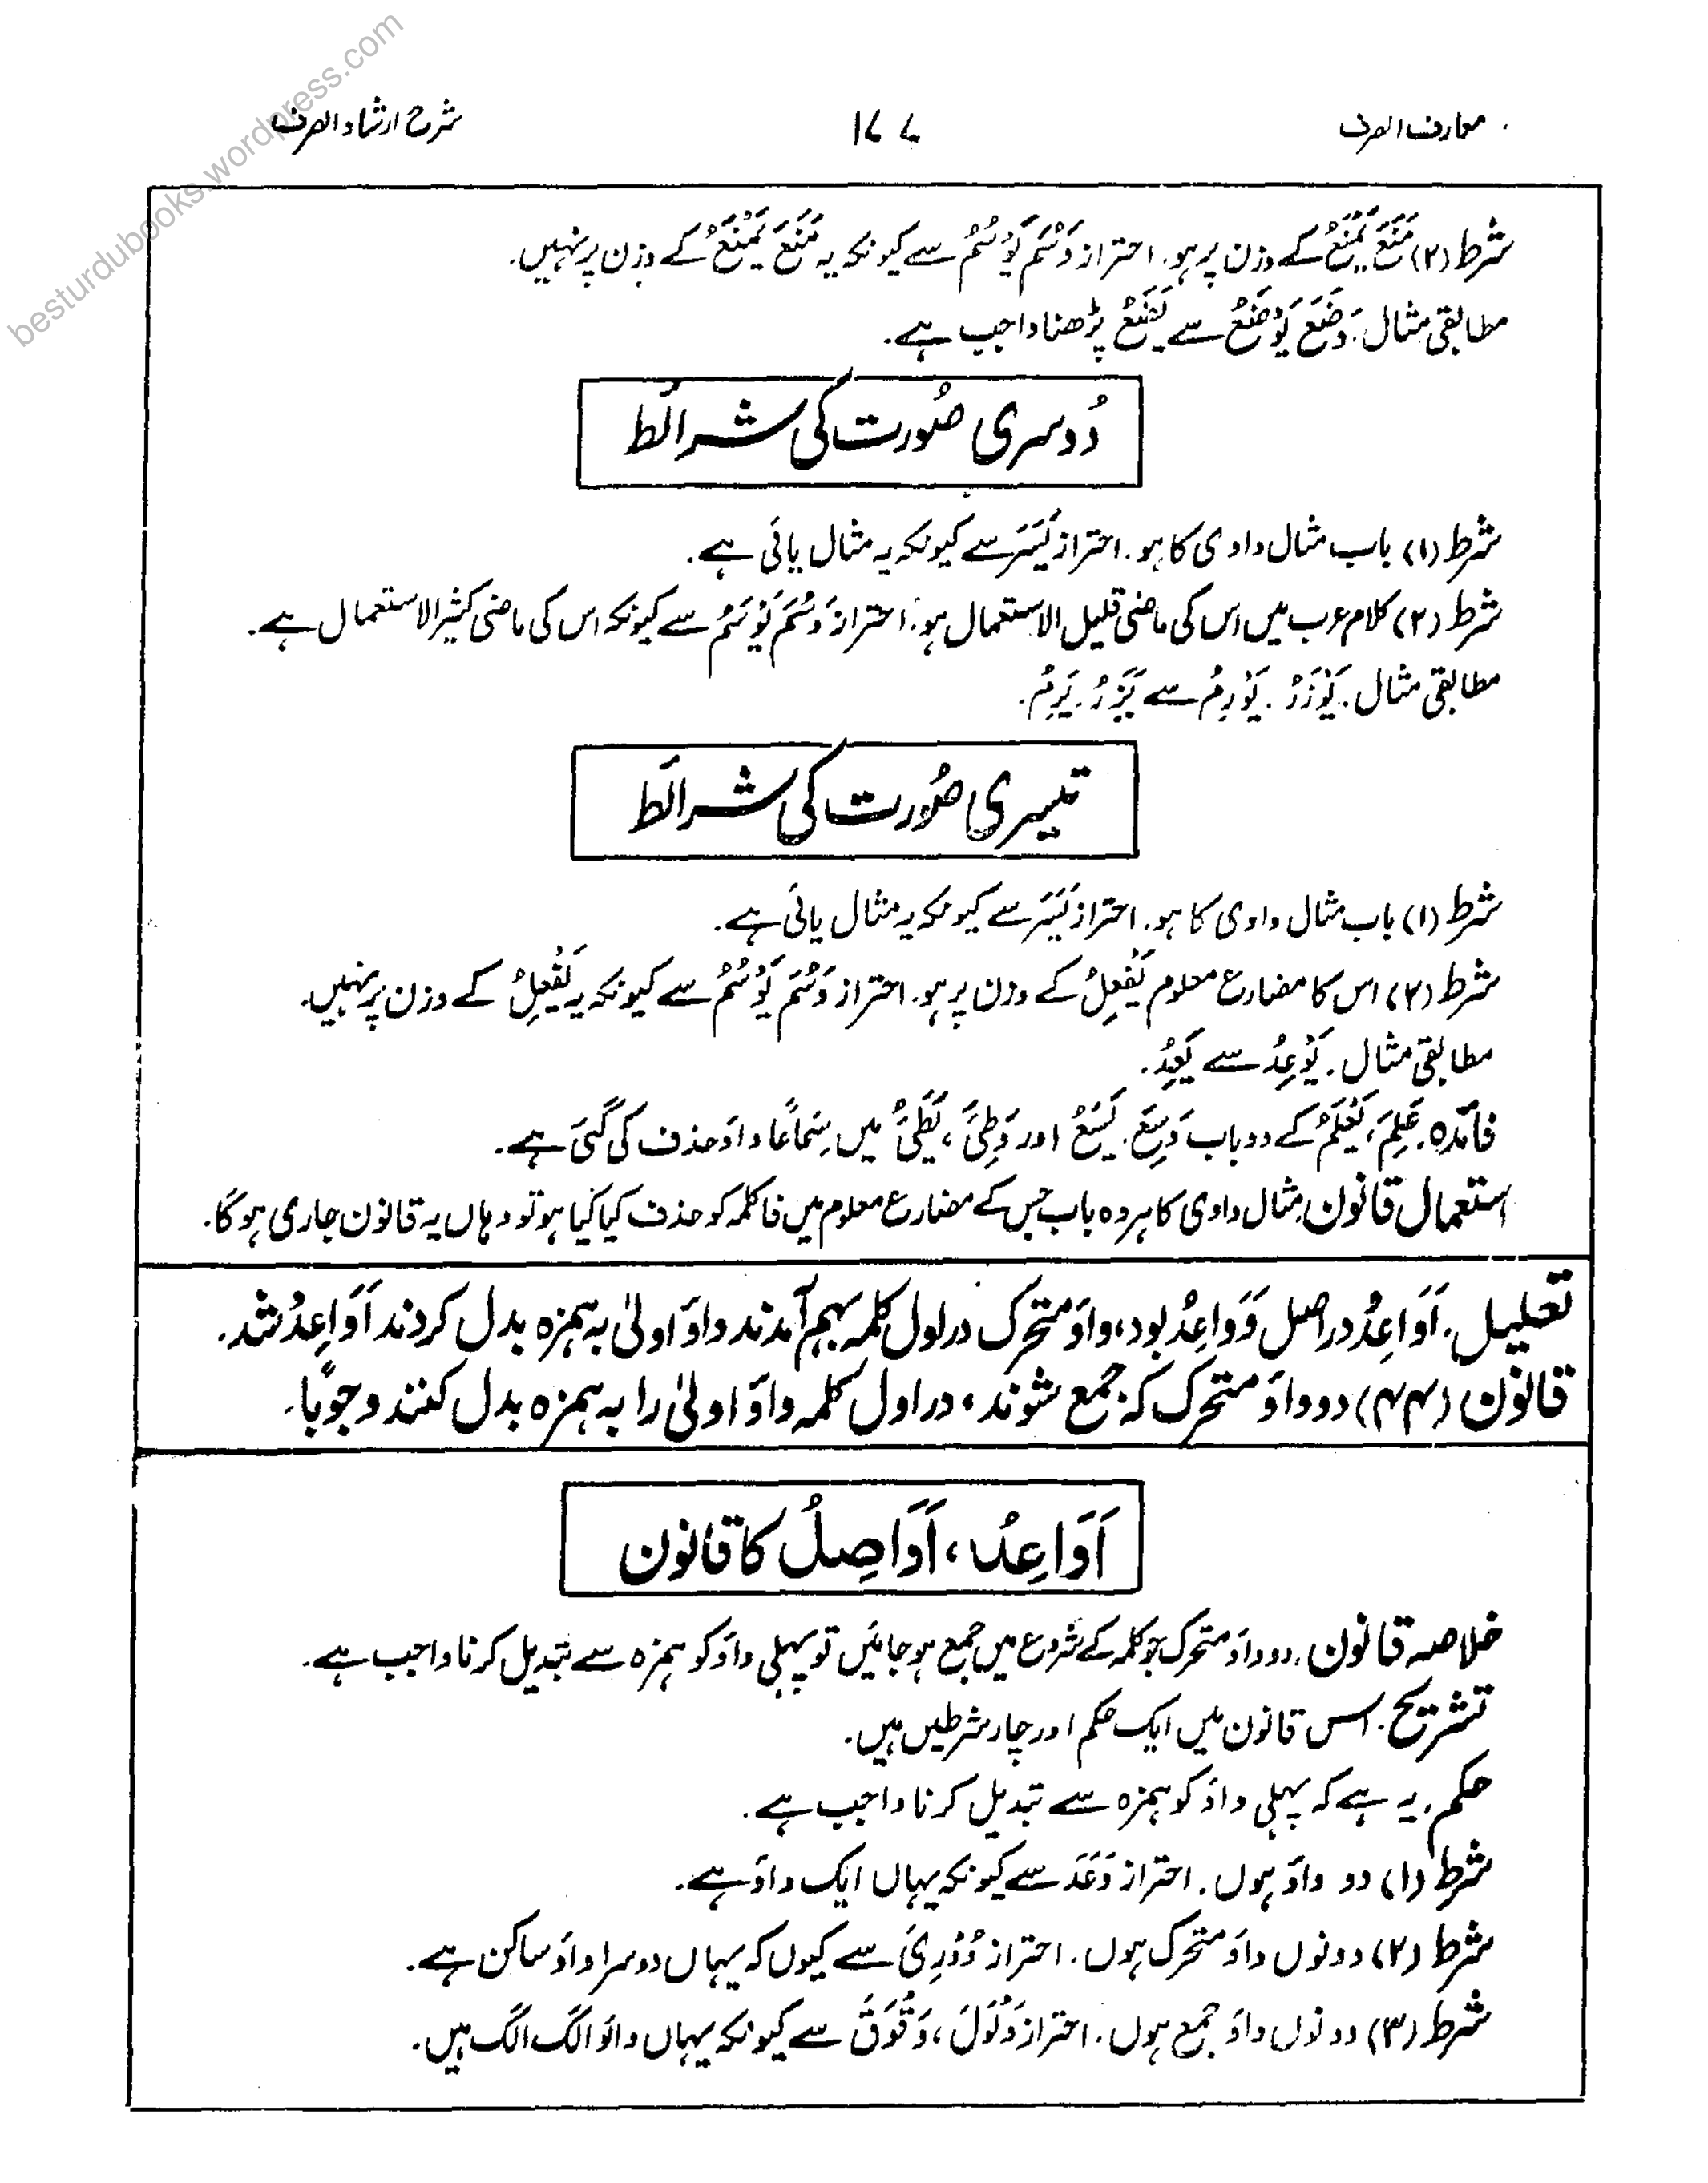 معارف الصرف
۱۷۷
شرح ارشاد الصرف
besturdubooks.wordpress.com
شرط (۲) مَنَعَ یَمْنَعُ کے وزن پر ہو۔ احتراز وَسُمَ یَوْسُمُ سے کیونکہ یہ مَنَعَ یَمْنَعُ کے وزن پر نہیں۔
مطابقی مثال۔ وَضَعَ یَوْضَعُ سے یَضَعُ پڑھنا واجب ہے۔
دُوسری صُورت کی شرائط
شرط (۱) باب مثال واوی کا ہو۔ احتراز یَسَرَ سے کیونکہ یہ مثال یائی ہے۔
شرط (۲) کلام عرب میں اس کی ماضی قلیل الاستعمال ہو۔ احتراز وَسُمَ یَوْسُمُ سے کیونکہ اس کی ماضی کثیر الاستعمال ہے۔
مطابقی مثال۔ یَوْزَرُ۔ یَوْرِمُ سے یَزَرُ۔ یَرِمُ۔
تیسری صُورت کی شرائط
شرط (۱) باب مثال واوی کا ہو۔ احتراز یَسَرَ سے کیونکہ یہ مثال یائی ہے۔
شرط (۲) اس کا مضارع معلوم یَفْعِلُ کے وزن پر ہو۔ احتراز وَسُمَ یَوْسُمُ سے کیونکہ یہ یَفْعِلُ کے وزن پر نہیں۔
مطابقی مثال۔ یَوْعِدُ سے یَعِدُ۔
فائدہ۔ عَلِمَ، یَعْلَمُ کے دو باب وَسِعَ۔ یَسَعُ اور وَطِیَٔ، یَطَیُٔ میں سِمَاعًا واؤ حذف کی گئی ہے۔
استعمال قانون۔ مثال واوی کا ہر وہ باب جس کے مضارع معلوم میں فا کلمہ کو حذف کیا گیا ہو تو وہاں یہ قانون جاری ہو گا۔
تعلیل۔ اَوَاعِدُ دراصل وَوَاعِدُ بود، واؤ متحرک دراول کلمہ بہم آمدند واؤ اولیٰ بہ ہمزہ بدل کردند اَوَاعِدُ شد۔
قانون (۴۴) دو واؤ متحرک کہ جمع شوند، در اول کلمہ واؤ اولیٰ را بہ ہمزہ بدل کنند وجوبًا۔
اَوَاعِدُ، اَوَاصِلُ کا قانون
خلاصہ قانون۔ دو واؤ متحرک جو کلمہ کے شروع میں جمع ہو جائیں تو پہلی واؤ کو ہمزہ سے تبدیل کرنا واجب ہے۔
تشریح۔ اس قانون میں ایک حکم اور چار شرطیں ہیں۔
حکم۔ یہ ہے کہ پہلی واؤ کو ہمزہ سے تبدیل کرنا واجب ہے۔
شرط (۱) دو واؤ ہوں۔ احتراز وَعَدَ سے کیونکہ یہاں ایک واؤ ہے۔
شرط (۲) دونوں واؤ متحرک ہوں۔ احتراز وُوْرِیَ سے کیوں کہ یہاں دوسرا واؤ ساکن ہے۔
شرط (۳) دونوں واؤ جمع ہوں۔ احتراز وَلْوَلَ، وَقْوَقَ سے کیونکہ یہاں واؤ الگ الگ ہیں۔